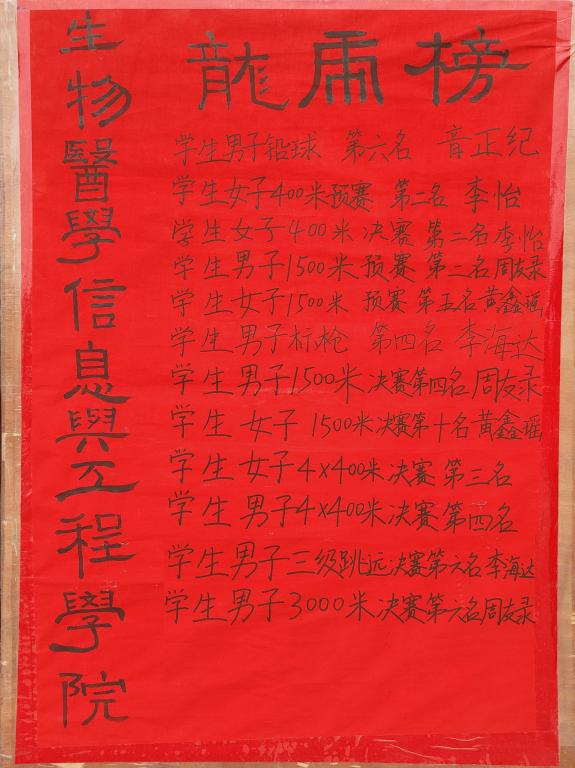 龍虎榜
生物醫學信息與工程學院
学生男子铅球 第六名 音正纪
学生女子400米预赛 第二名 李怡
学生女子400米决赛第二名李怡
学生男子1500米预赛第二名周友录
学生女子1500米 预赛第五名黄鑫瑶
学生男子标枪 第四名 李海达
学生男子1500米决赛第四名周友录
学生女子1500米决赛第十名黄鑫瑶
学生女子4×400米决赛第三名
学生男子4×400米决赛第四名
学生男子三级跳远决赛第六名李海达
学生男子3000米决赛第六名周友录